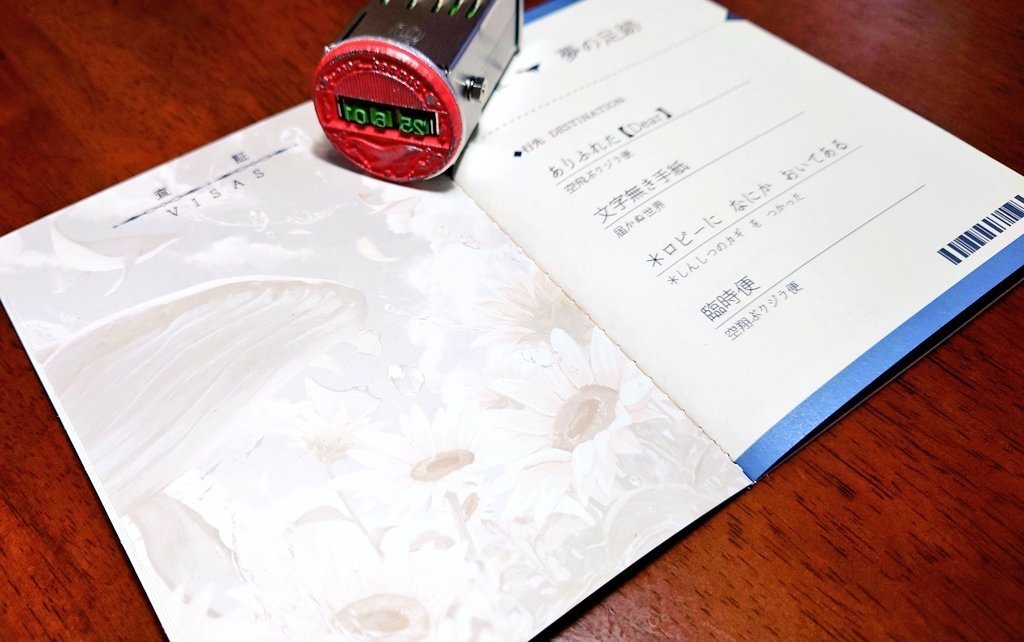 査 証
VISAS
夢の足跡
◆行先 DESTINATION
ありふれた【Dear】
空飛ぶクジラ便
文字無き手紙
届かぬ世界
＊ロビーに なにか おいてある
＊しんしつのカギ を つかった
臨時便
空翔ぶクジラ便